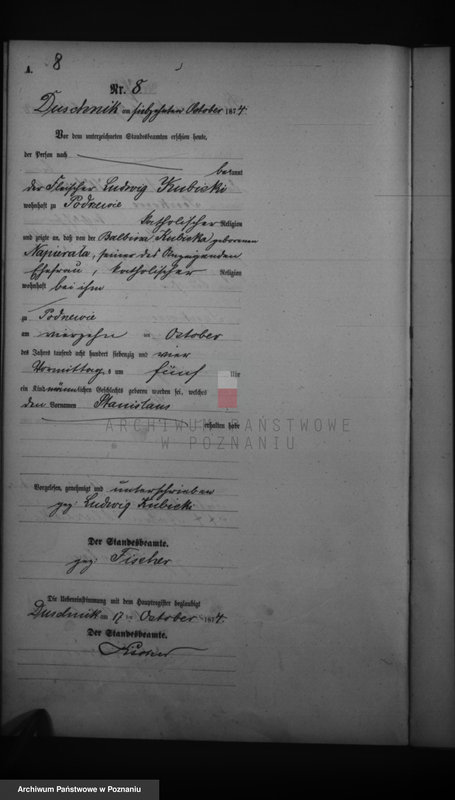 A. 8
Nr. 8
Duschnik am siebzehnten October 1874.
Vor dem unterzeichneten Standesbeamten erschien heute,
der Person nach
bekannt
der Fleischer Ludwig Kubicki
wohnhaft zu Podrewie
katholischer Religion
und zeigte an, daß von der Balbina Kubicka geborenen
Napierala, seiner des Anzeigenden
Ehefrau, katholischer Religion
wohnhaft bei ihm
zu Podrewie
am vierzehn ten October
des Jahres tausend acht hundert siebenzig und vier
Vormittags um fünf Uhr
ein Kind männlichen Geschlechts geboren worden sei, welches
den Vornamen Stanislaus
erhalten habe
ARCHIWUM PAŃSTWOWE
W POZNANIU
Vorgelesen, genehmigt und unterschrieben
gez. Ludwig Kubicki
Der Standesbeamte.
gez. Fischer
Die Uebereinstimmung mit dem Hauptregister beglaubigt
Duschnik am 17 ten October 1874.
Der Standesbeamte.
Archiwum Państwowe w Poznaniu